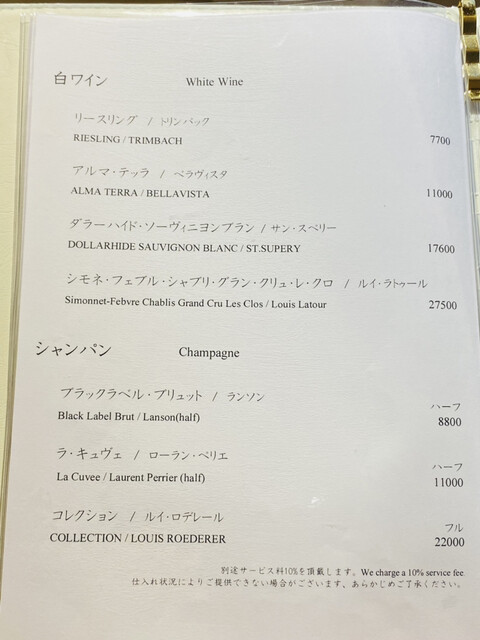 白ワイン White Wine
リースリング / トリンバック
RIESLING / TRIMBACH 7700
アルマ・テッラ / ベラヴィスタ
ALMA TERRA / BELLAVISTA 11000
ダラーハイド・ソーヴィニヨンブラン / サン・スペリー
DOLLARHIDE SAUVIGNON BLANC / ST.SUPERY 17600
シモネ・フェブル・シャブリ・グラン・クリュ・レ・クロ / ルイ・ラトゥール
Simonnet-Febvre Chablis Grand Cru Les Clos / Louis Latour 27500
シャンパン Champagne
ブラックラベル・ブリュット / ランソン ハーフ
Black Label Brut / Lanson(half) 8800
ラ・キュヴェ / ローラン・ペリエ ハーフ
La Cuvee / Laurent Perrier (half) 11000
コレクション / ルイ・ロデレール フル
COLLECTION / LOUIS ROEDERER 22000
別途サービス料10%を頂戴します。We charge a 10% service fee.
仕入れ状況によりご提供できない場合がございます、あらかじめご了承ください。